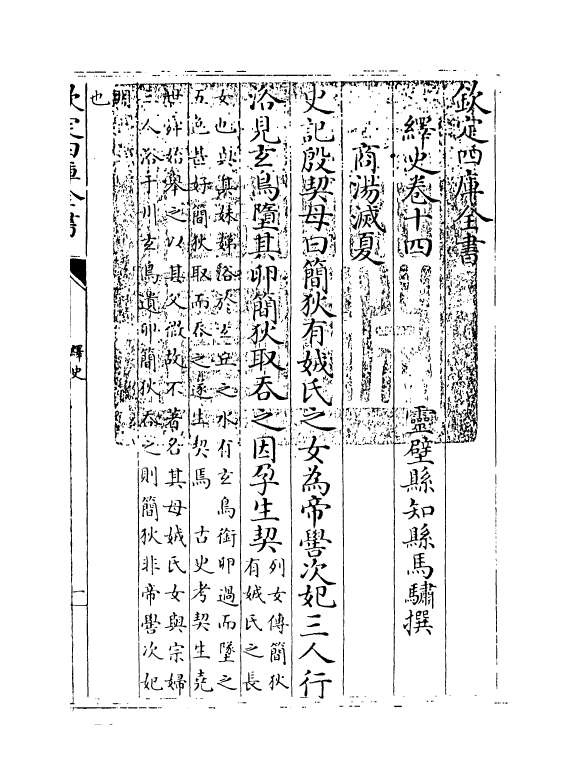 欽定四庫全書
繹史卷十四
靈壁縣知縣馬驌撰
商湯滅夏
史記殷契母曰簡狄有娀氏之女為帝嚳次妃三人行
浴見玄鳥墮其卵簡狄取吞之因孕生契
列女傳簡狄
有娀氏之長
女也與其妹娣浴於玄丘之水有玄鳥銜卵過而墜之
五色甚好簡狄取而吞之遂生契焉 古史考契生堯
世舜始舉之以其父微故不著名其母娀氏女與宗婦
三人浴于川玄鳥遺卵簡狄吞之則簡狄非帝嚳次妃
明
也
欽定四庫全書
繹史
一